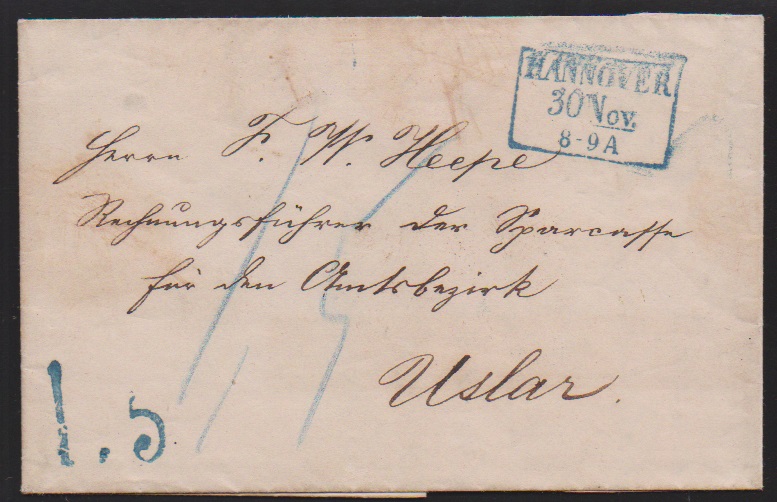 HANNOVER
30 Nov.
8-9 A
Herrn F. W. Heepe
Rechnungsführer der Sparcasse
für den Amtsbezirk
Uslar.
1.5